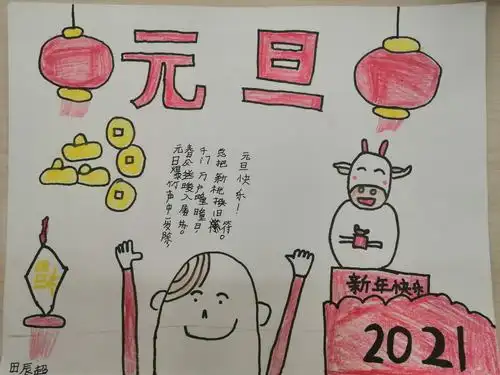 元旦
元日爆竹声中一岁除，
春风送暖入屠苏。
千门万户曈曈日，
总把新桃换旧符。
元旦快乐！
新年快乐
2021
田辰超